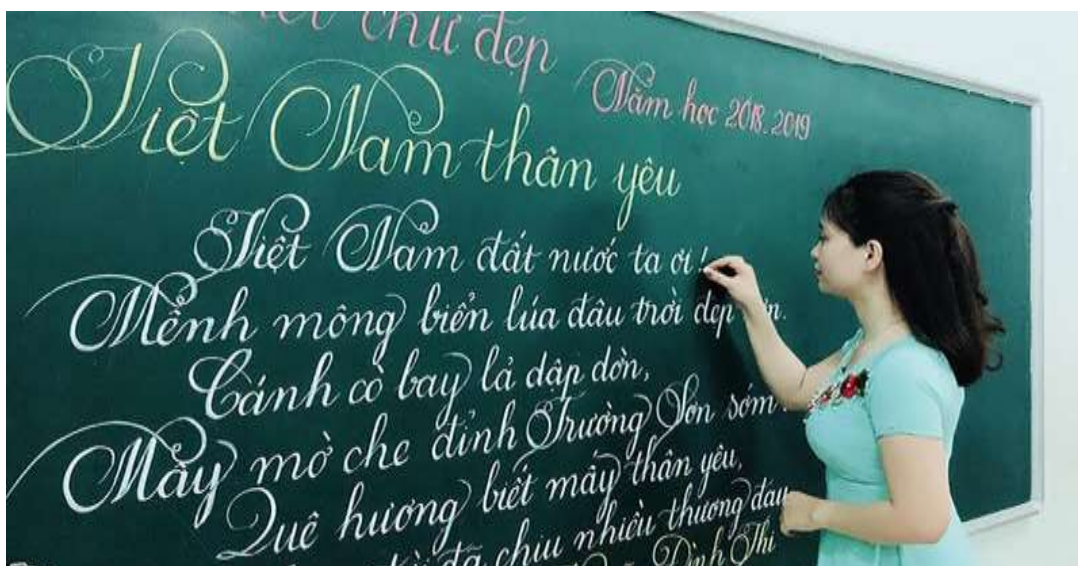 chữ đẹp
Năm học 2018.2019
Việt Nam thân yêu
Việt Nam đất nước ta ơi!
Mênh mông biển lúa đâu trời đẹp
Cánh cò bay lả dập dờn,
Mây mờ che đỉnh Trường Sơn sớm
Quê hương biết mấy thân yêu,
đã chịu nhiều thương đau
Đình Thi